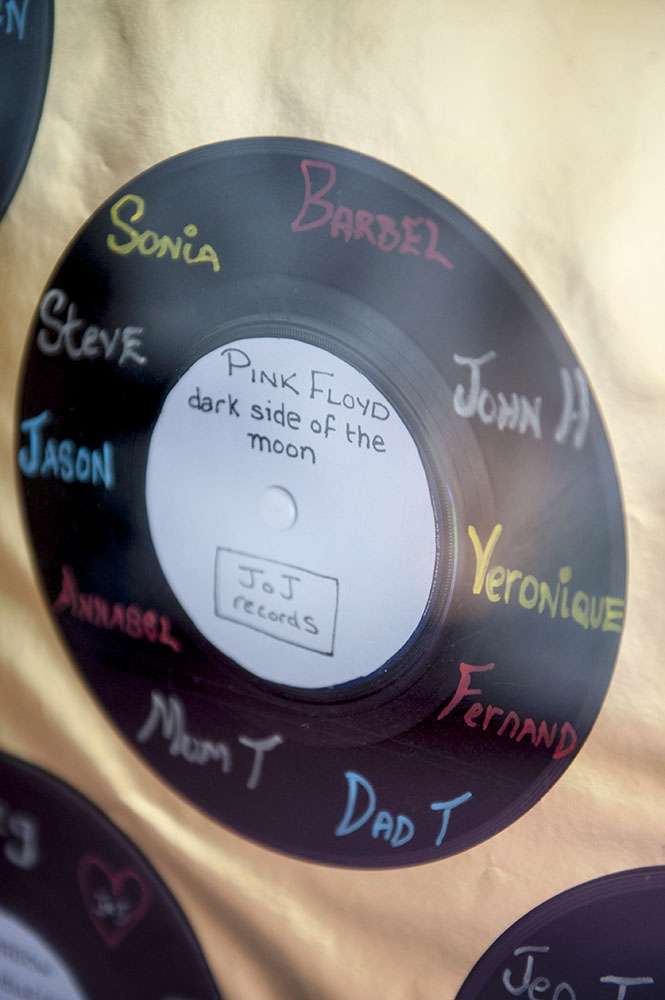 PINK FLOYD
dark side of the
moon
JoJ
records
BARBEL
JOHN H
VERONIQUE
FERNAND
DAD T
MUM T
ANNABEL
JASON
STEVE
SONIA